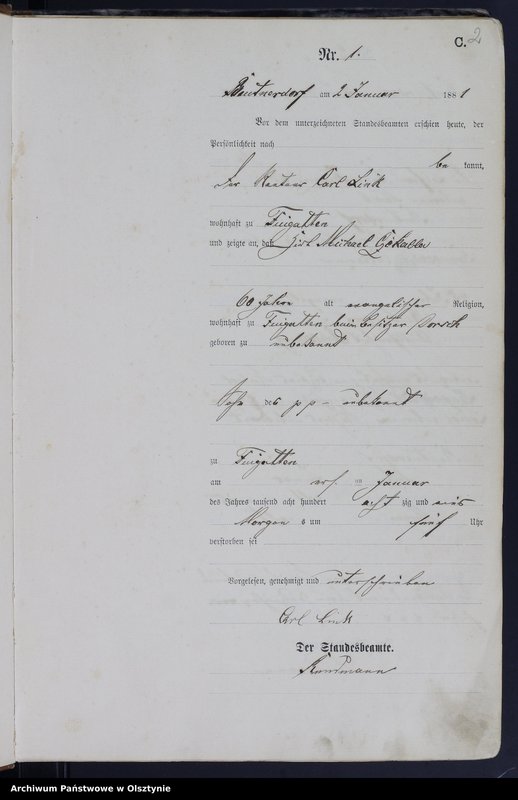 C. 2
Nr. 1.
Beutnerdorf am 2 Januar 1881
Vor dem unterzeichneten Standesbeamten erschien heute, der
Persönlichkeit nach
be kannt,
Der Carl Link
wohnhaft zu Fingatten
und zeigte an, daß Michael
60 Jahre alt evangelischer Religion,
wohnhaft zu Fingatten beim Besitzer
geboren zu unbekannt
Sohn des p p - unbekannt
zu Fingatten
am ersten Januar
des Jahres tausend acht hundert acht zig und eins
Morgen s um fünf Uhr
verstorben sei
Vorgelesen, genehmigt und unterschrieben
Carl Link
Der Standesbeamte.
Archiwum Państwowe w Olsztynie